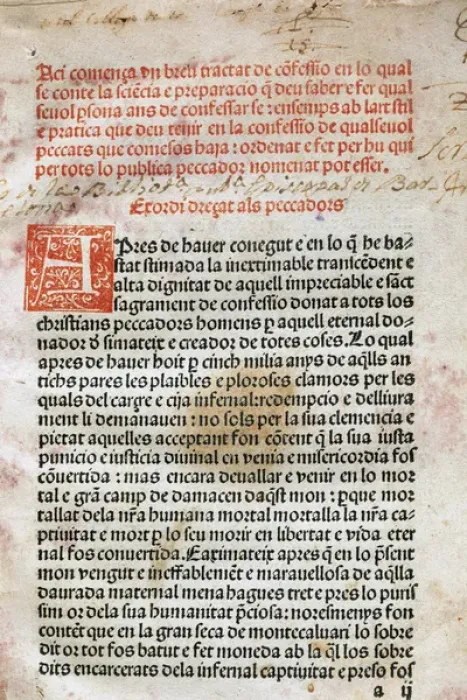 Aci comença vn breu tractat de cõfessio en lo qual
se conte la sciẽcia e preparacio q̃ deu saber e fer qual
seuol ꝑsona ans de confessar se : ensemps ab lart stil
e pratica que deu tenir en la confessio de qualseuol
peccats que comesos haja : ordenat e fet per hu qui
per tots lo publica peccador nomenat pot esser.
Exordi dreçat als peccadors
APres de hauer conegut e en lo q̃ he ba=
stat stimada la inextimable transcẽdent e
alta dignitat de aquell impreciable e sãct
sagrament de confessio donat a tots los
christians peccadors homens ꝑ aquell eternal do=
nador d̉ simateix e creador de totes coses. Lo qual
apres de hauer hoit ꝑ cinch milia anys de aq̃lls an
tichs pares les plaibles e ploroses clamors per les
quals del carçre e infernal:redempcio e delliura
ment li demanauen : no sols per la sua clemencia e
pietat aquelles acceptant fon cõtent q̃ la sua iusta
punicio e iusticia diuinal en venia e misericordia fos
cõuertida : mas encara deuallar e venir en lo mor
tal e grã camp de damacen daq̃st mon : ꝑque mor
tallat dela nr̃a humana mortal mortalla la nr̃a ca=
ptiuitat e mort ꝑ lo seu morir en libertat e vida eter
nal fos conuertida. E aximateix apres q̃ en lo p̃sent
mon vengut e ineffablemẽt e marauellosa de aq̃lla
daurada maternal mena hagues tret e pres lo puris
sim or dela sua humanitat p̃ciosa : noresmenys fon
contẽt que en la gran seca de montecaluari lo sobre
dit or tot fos batut e fet moneda ab la q̃l los sobre
dits encarcerats dela infernal captiuitat e preso fos
a ij